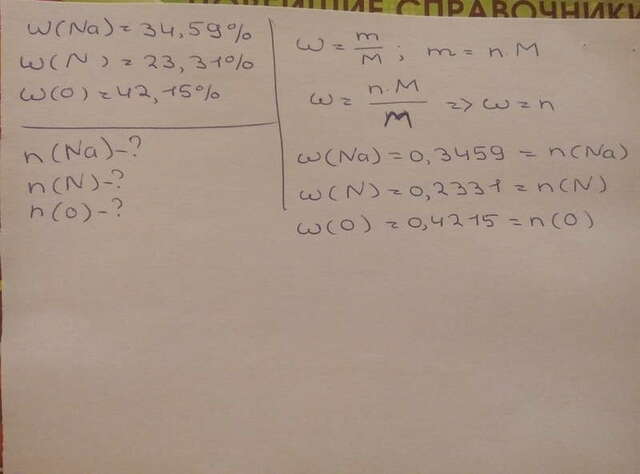 СПРАВОЧНИКИ
w(Na)=34,59%
w(N)=23,31%
w(O)=42,15%
n(Na)-?
n(N)-?
n(O)-?
w=m/M; m=n.M
w=n.M/M => w=n
w(Na)=0,3459=n(Na)
w(N)=0,2331=n(N)
w(O)=0,4215=n(O)